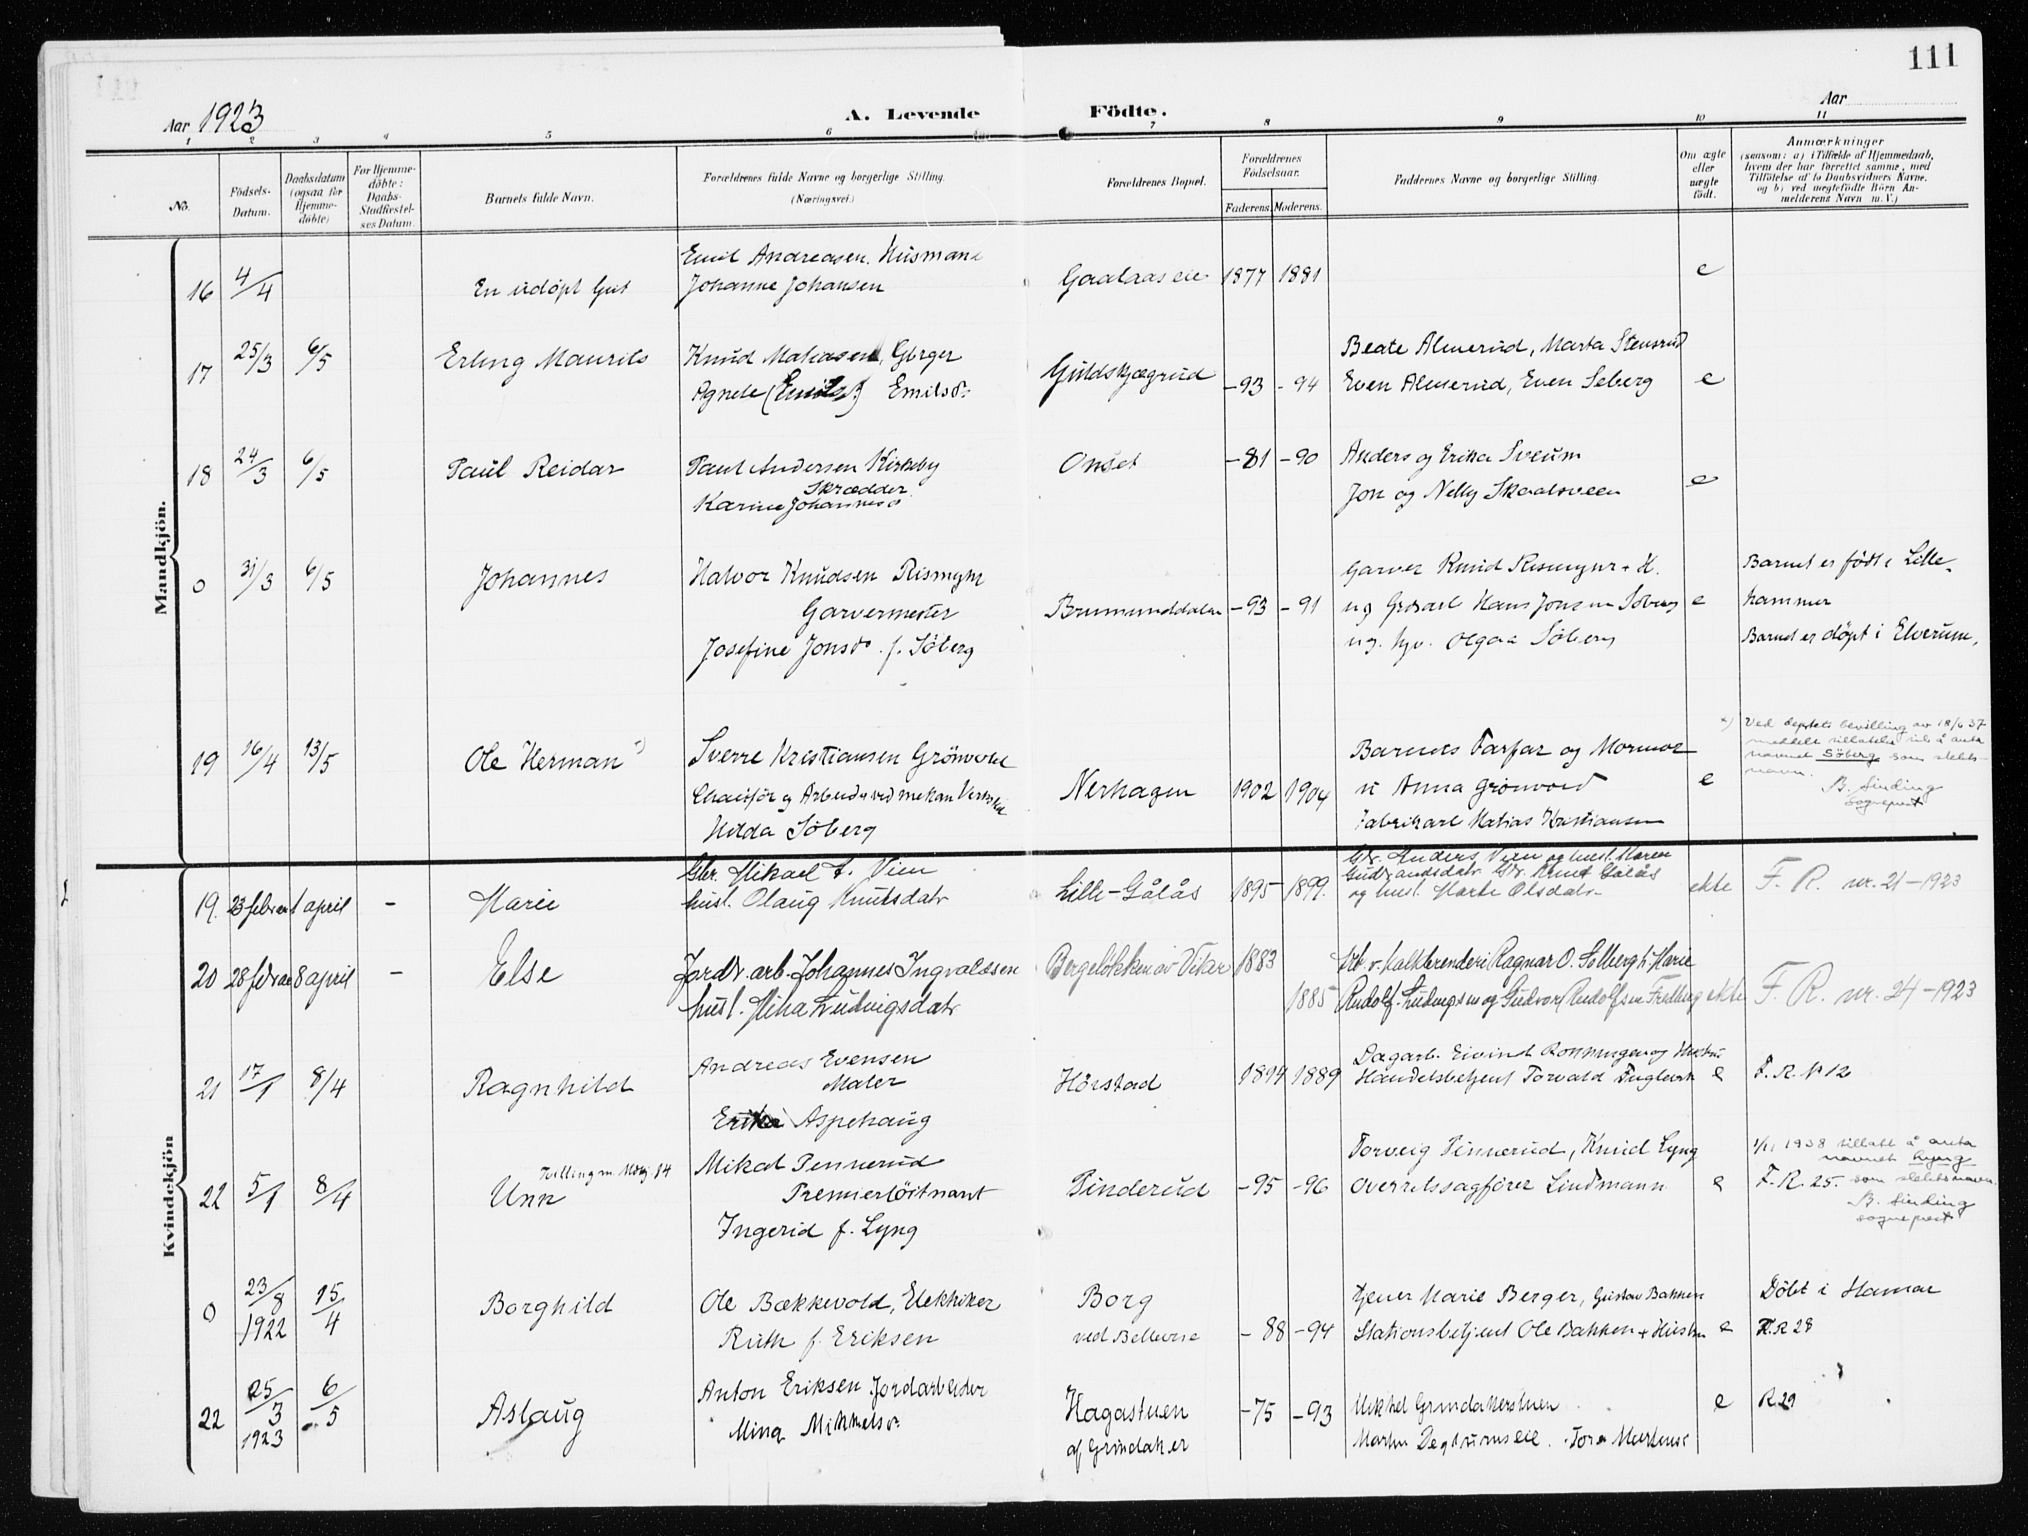 111
Aar 1923
A. Levende Födte.
Aar
1 2 3 4 5 6 7 8 9 10 11
No.
Födsels-
Datum.
Daabsdatum
(ogsaa for
Hjemme-
döbte)
For Hjemme-
döbte:
Daabs-
Stadfæstel-
ses Datum.
Barnets fulde Navn.
Forældrenes fulde Navne og borgerlige Stilling.
(Næringsvei.)
Forældrenes Bopæl.
Forældrenes
Födselsaar.
Faderens. Moderens.
Faddernes Navne og borgerlige Stilling.
Om ægte
eller
uægte
födt.
Anmærkninger
(saasom: a) i Tilfælde af Hjemmedaab,
hvem der har forrettet samme, med
Tilföielse af to Daabsvidners Navne,
og b) ved uægtefödte Börn An-
melderens Navn m.V.)
Mandkjön.
16 4/4 En udöpt Gut
Emil Andreasen. Husmand
Johanne Johansen
Gaalaas eie 1877 1881 e
17 25/3 6/5 Erling Maurits
Knud Matiasen, Gbrger
Agnete Emilsd.
Guldskjægrud -93 -94
Beate Almerud, Marta Stensrud
Even Almerud, Even Seberg e
18 24/3 6/5 Paul Reidar
Paul Andersen Kirkeby
Skrædder
Karine Johannesd
Onset -81 -90
Anders og Erika Sveum
Jon og Nelly Skaalsveen e
0 31/3 6/5 Johannes
Halvor Knudsen Rismyhr
Garvermester
Josefine Jonsd. f. Söberg
Brumunddalen -93 -91
Garver Knud Rismyhr + H.
ug Grdsarb Hans Jonsen Söberg e
ug. Olga Söberg
Barnet er födt i Lille-
hammer
Barnet er döpt i Elverum.
19 16/4 13/5 Ole Herman x)
Sverre Kristiansen Grönvold
Chauför og Arbeider ved mekan Verksted
Hilda Söberg
Nerhagen 1902 1904
Barnets Farfar og Mormor
u Anna Grönvold e
Fabrikarb Matias Kristiansen
x) Ved deptets bevilling av 18/6 37
meddelt tillatelse til å anta
navnet Söberg som slekts-
navn.
B. Sinding
sogneprest
Kvindekjön
19. 23 februar 1 april - Marie
Gbr. Mikael A. Vien
hust. Olaug Knutsdatr
Lille-Gålås 1895 1899.
Gbr. Anders Vien og hust. Maren
Gudbrandsdatr Gbr. Knut Gålås
og hust. Marte Olsdatr ekte
F. R. nr. 21 - 1923
20 28 februar 8 april - Else
Jordbr. arb. Johannes Ingvaldsen
hust. Mina Ludvigsdatr
Bergeløkken av Vikar 1883
1885
Arb. v. Kalkbrenderi Ragnar O. Solberg h. Marie
Rudolf Ludvigsen og Gudvor Rudolfsen Fredberg ekte
F. R. nr. 24 - 1923
21 17/1 8/4 Ragnhild
Andreas Evensen
Maler
Erika Aspehaug
Hörstad 1894 1889
Dagarb. Eivind Rønningen og Hustru
Handelsbetjent Torvald e
F. R. № 12
22 5/1 8/4 Unn
Tvilling m.
Mikal Pennerud
Premierlöitnant
Ingerid f. Lyng
Pinderud -95 -96
Torveig Pinnerud, Knud Lyng
Overretssagförer Lindmann e
1938 tillatt å anta
navnet Lyng
F. R. 25. som slektsnavn.
B. Sinding
sogneprest
0 23/8 1922 15/4 Borghild
Ole Bækkevold, Elektriker
Ruth f. Eriksen
Borg
ved Bellevue -88 -94
tjener Marie Berger, Gustav Bakken
Stationsbetjent Ole Bakken + Hustru e
Döbt i Hamar
F. R 28
22 25/3 1923 6/5 Aslaug
Anton Eriksen Jordarbeider
Mina Mikkelsd.
Hagastuen
af Grindaker -75 -93
Mikkel Grindakerstuen
Martin Deglumseie. Tora Martinse e
R 29